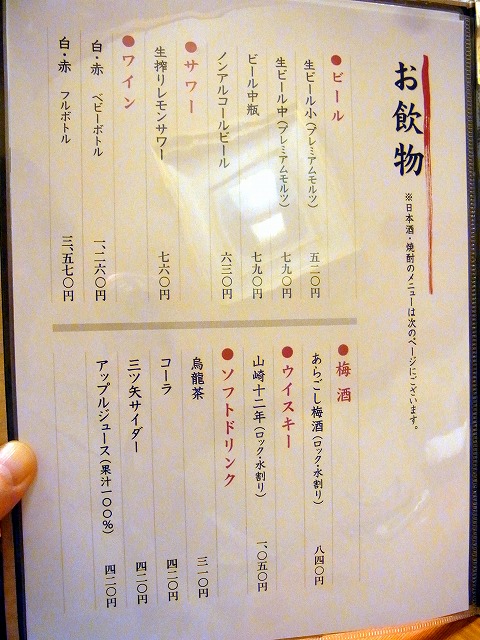 お飲物
※日本酒・焼酎のメニューは次のページにございます。
●ビール
生ビール小(プレミアムモルツ) 五二〇円
生ビール中(プレミアムモルツ) 七九〇円
ビール中瓶 七九〇円
ノンアルコールビール 六三〇円
●サワー
生搾りレモンサワー 七六〇円
●ワイン
白・赤 ベビーボトル 一、二六〇円
白・赤 フルボトル 三、五七〇円
●梅酒
あらごし梅酒(ロック・水割り) 八四〇円
●ウイスキー
山崎十二年(ロック・水割り) 一、〇五〇円
●ソフトドリンク
烏龍茶 三一〇円
コーラ 四二〇円
三ツ矢サイダー 四二〇円
アップルジュース(果汁一〇〇%) 四二〇円